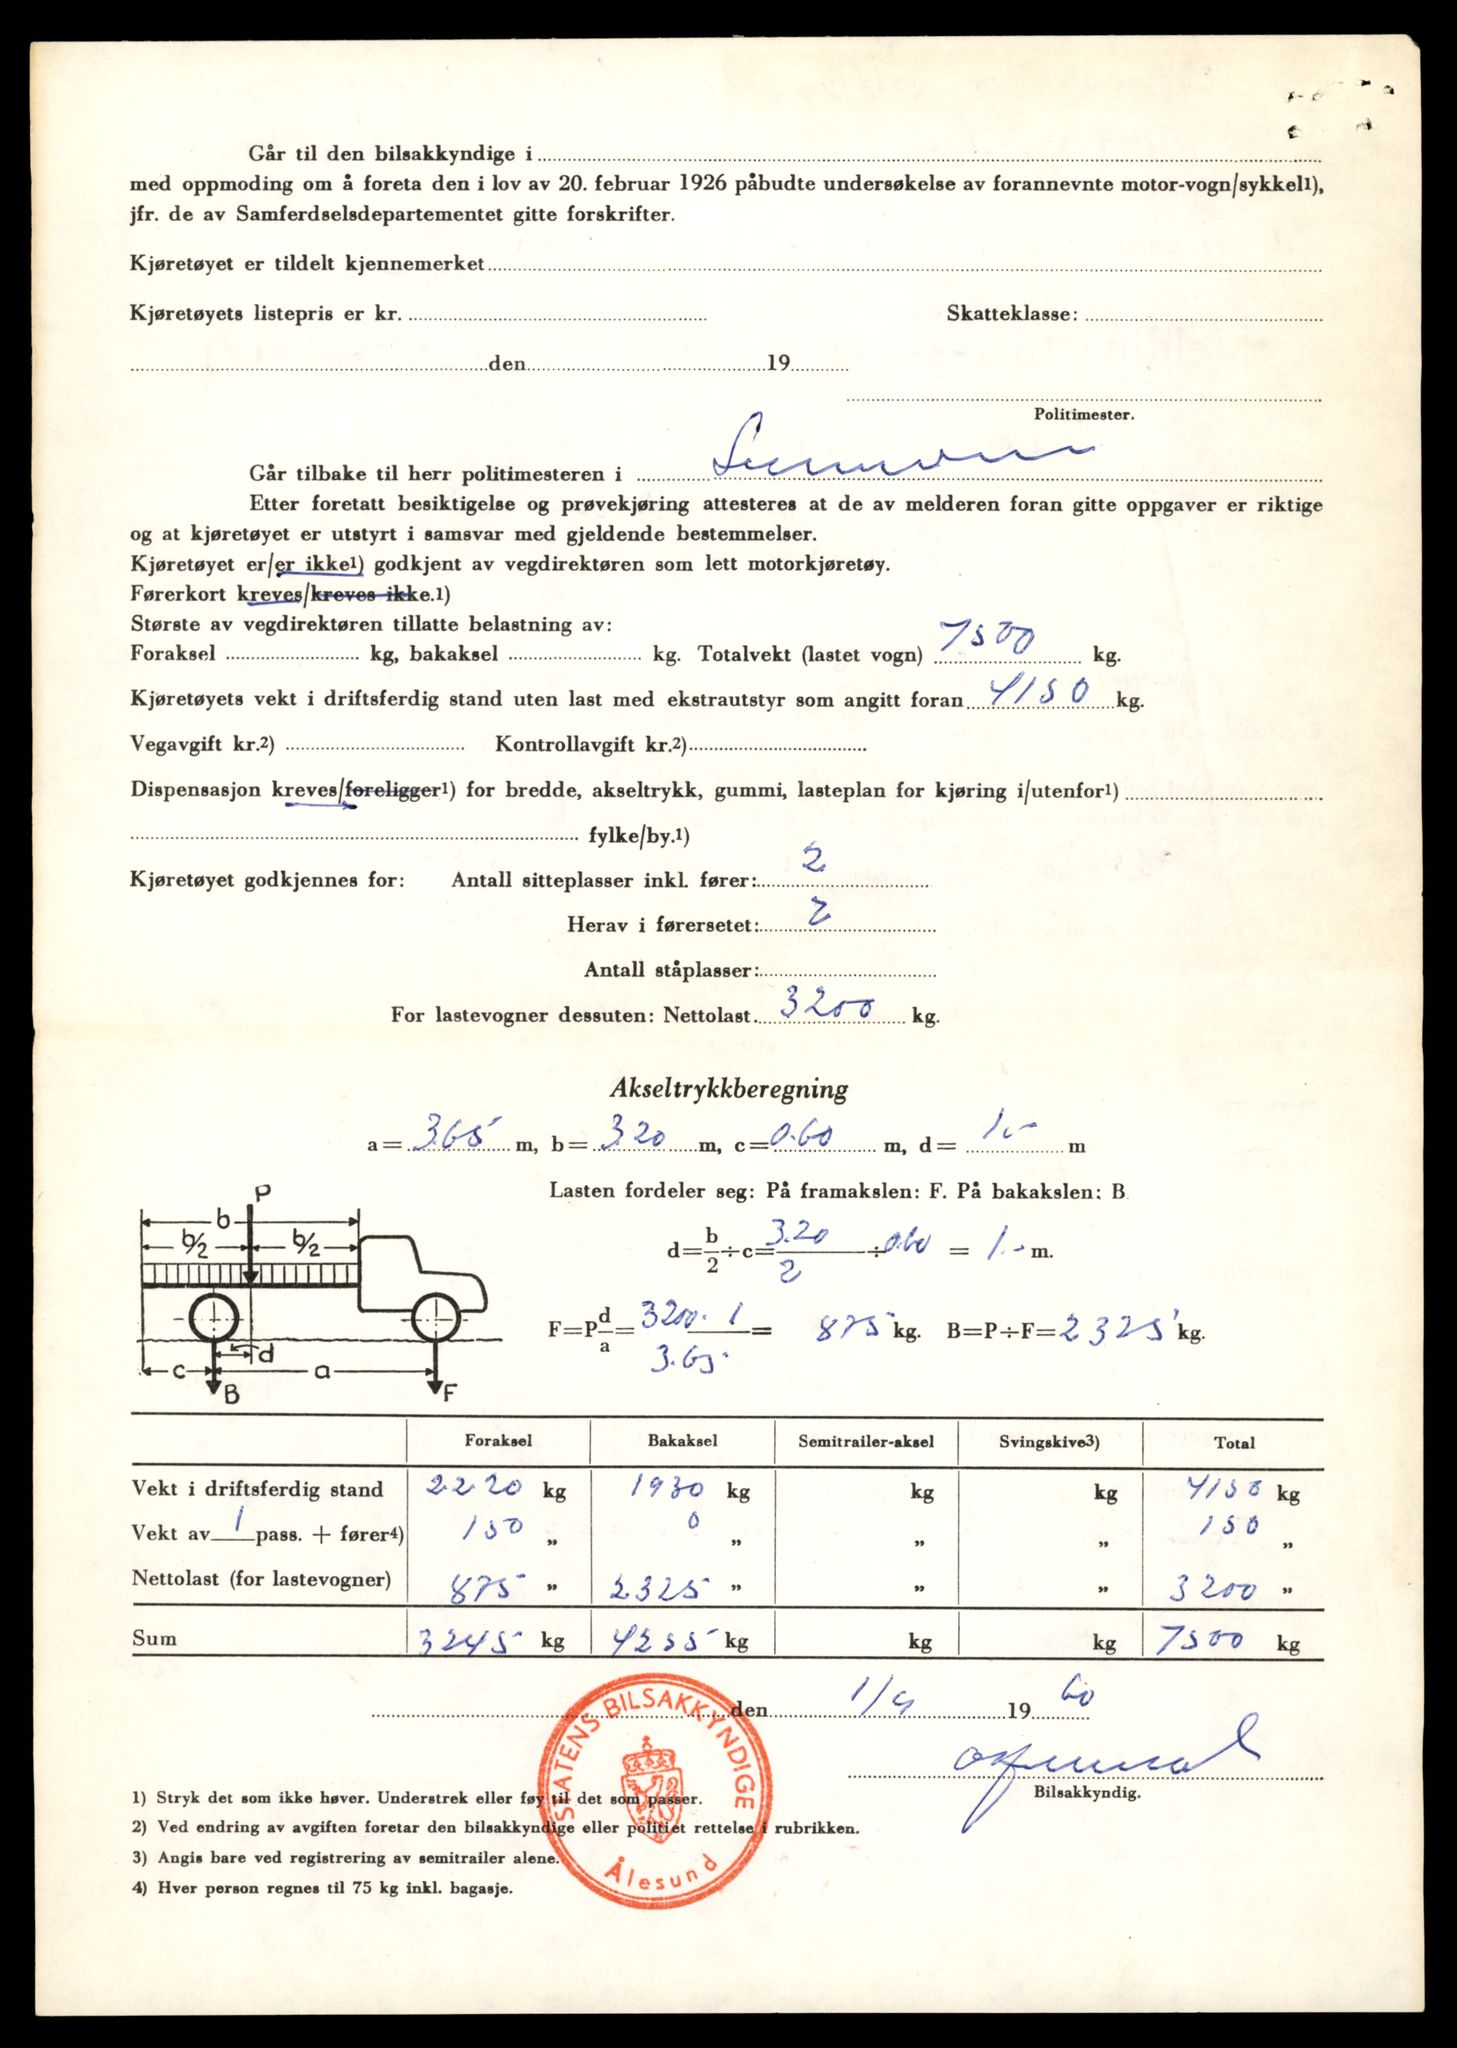 Går til den bilsakkyndige i
med oppmoding om å foreta den i lov av 20. februar 1926 påbudte undersøkelse av forannevnte motor-vogn/sykkel1),
jfr. de av Samferdselsdepartementet gitte forskrifter.
Kjøretøyet er tildelt kjennemerket
Kjøretøyets listepris er kr. Skatteklasse:
den 19
Politimester.
Går tilbake til herr politimesteren i
Etter foretatt besiktigelse og prøvekjøring attesteres at de av melderen foran gitte oppgaver er riktige
og at kjøretøyet er utstyrt i samsvar med gjeldende bestemmelser.
Kjøretøyet er/er ikke1) godkjent av vegdirektøren som lett motorkjøretøy.
Førerkort kreves/kreves ikke.1)
Største av vegdirektøren tillatte belastning av:
Foraksel kg, bakaksel kg. Totalvekt (lastet vogn) 7500 kg.
Kjøretøyets vekt i driftsferdig stand uten last med ekstrautstyr som angitt foran 4150 kg.
Vegavgift kr.2) Kontrollavgift kr.2)
Dispensasjon kreves/foreligger1) for bredde, akseltrykk, gummi, lasteplan for kjøring i/utenfor1)
fylke/by.1)
Kjøretøyet godkjennes for: Antall sitteplasser inkl. fører: 2
Herav i førersetet: 2
Antall ståplasser:
For lastevogner dessuten: Nettolast 3200 kg.
Akseltrykkberegning
a= 3.65 m, b= 3.20 m, c= 0.60 m, d= 1.- m
Lasten fordeler seg: På framakslen: F. På bakakslen: B
P
b
b/2 b/2
d= b/2 ÷ c= 3.20/2 ÷ 0.60 = 1.- m.
F=P d/a = 3200 . 1/3.65 = 875 kg. B=P÷F= 2325 kg.
d
c a
B F
Foraksel Bakaksel Semitrailer-aksel Svingskive3) Total
Vekt i driftsferdig stand 2220 kg 1930 kg kg kg 4150 kg
Vekt av 1 pass. + fører4) 150 „ 0 „ „ „ 150 „
Nettolast (for lastevogner) 875 „ 2325 „ „ „ 3200 „
Sum 3245 kg 4255 kg kg kg 7500 kg
den 1/9 19 60
STATENS BILSAKKYNDIGE
Ålesund
Bilsakkyndig.
1) Stryk det som ikke høver. Understrek eller føy til det som passer.
2) Ved endring av avgiften foretar den bilsakkyndige eller politiet rettelse i rubrikken.
3) Angis bare ved registrering av semitrailer alene.
4) Hver person regnes til 75 kg inkl. bagasje.